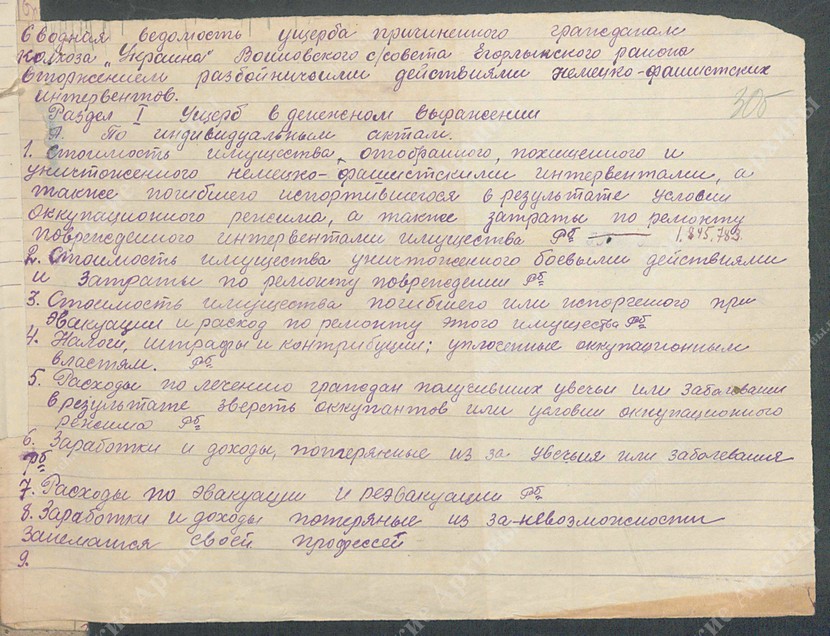 Сводная ведомость ущерба причиненного гражданам
колхоза „Украина" Войновского с/совета Егорлыкского района
вторжением разбойничьими действиями немецко-фашистских
интервентов.
305
Раздел I Ущерб в денежном выражении
А. По индивидуальным актам.
1. Стоимость имущества, отобранного, похищенного и
уничтоженного немецко-фашистскими интервентами, а
также погибшего испортившегося в результате условий
оккупационного режима, а также затраты по ремонту
поврежденного интервентами имущества Рб 1.845.783
2. Стоимость имущества уничтоженного боевыми действиями
и затраты по ремонту повреждений Рб
3. Стоимость имущества погибшего или испорченого при
эвакуации и расход по ремонту этого имущества Рб
4. Налоги, штрафы и контрибуции; уплоченные оккупационным
властям. Рб
5. Расходы по лечению граждан получивших увечьи или заболевании
в результате зверств оккупантов или условий оккупационного
режима Рб
6. Заработки и доходы, потеряные из за увечьия или заболевания
Рб
7. Расходы по эвакуации и реэвакуации Рб
8. Заработки и доходы потеряные из за-невозможности
занематся своей профессей
9.